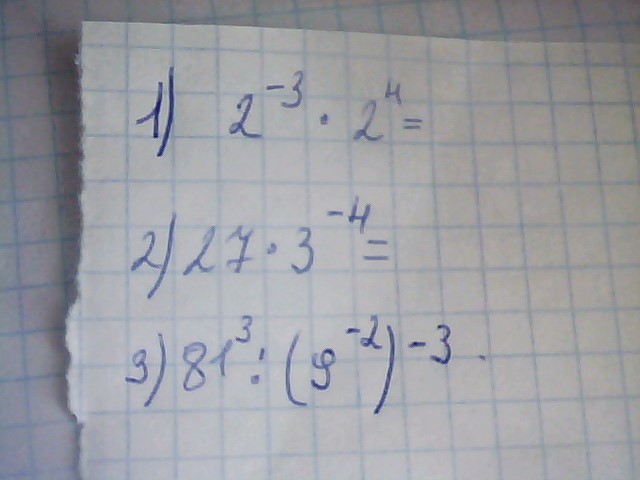 1) 2⁻³ · 2⁴ =
2) 27 · 3⁻⁴ =
3) 81³ : (9⁻²)⁻³.